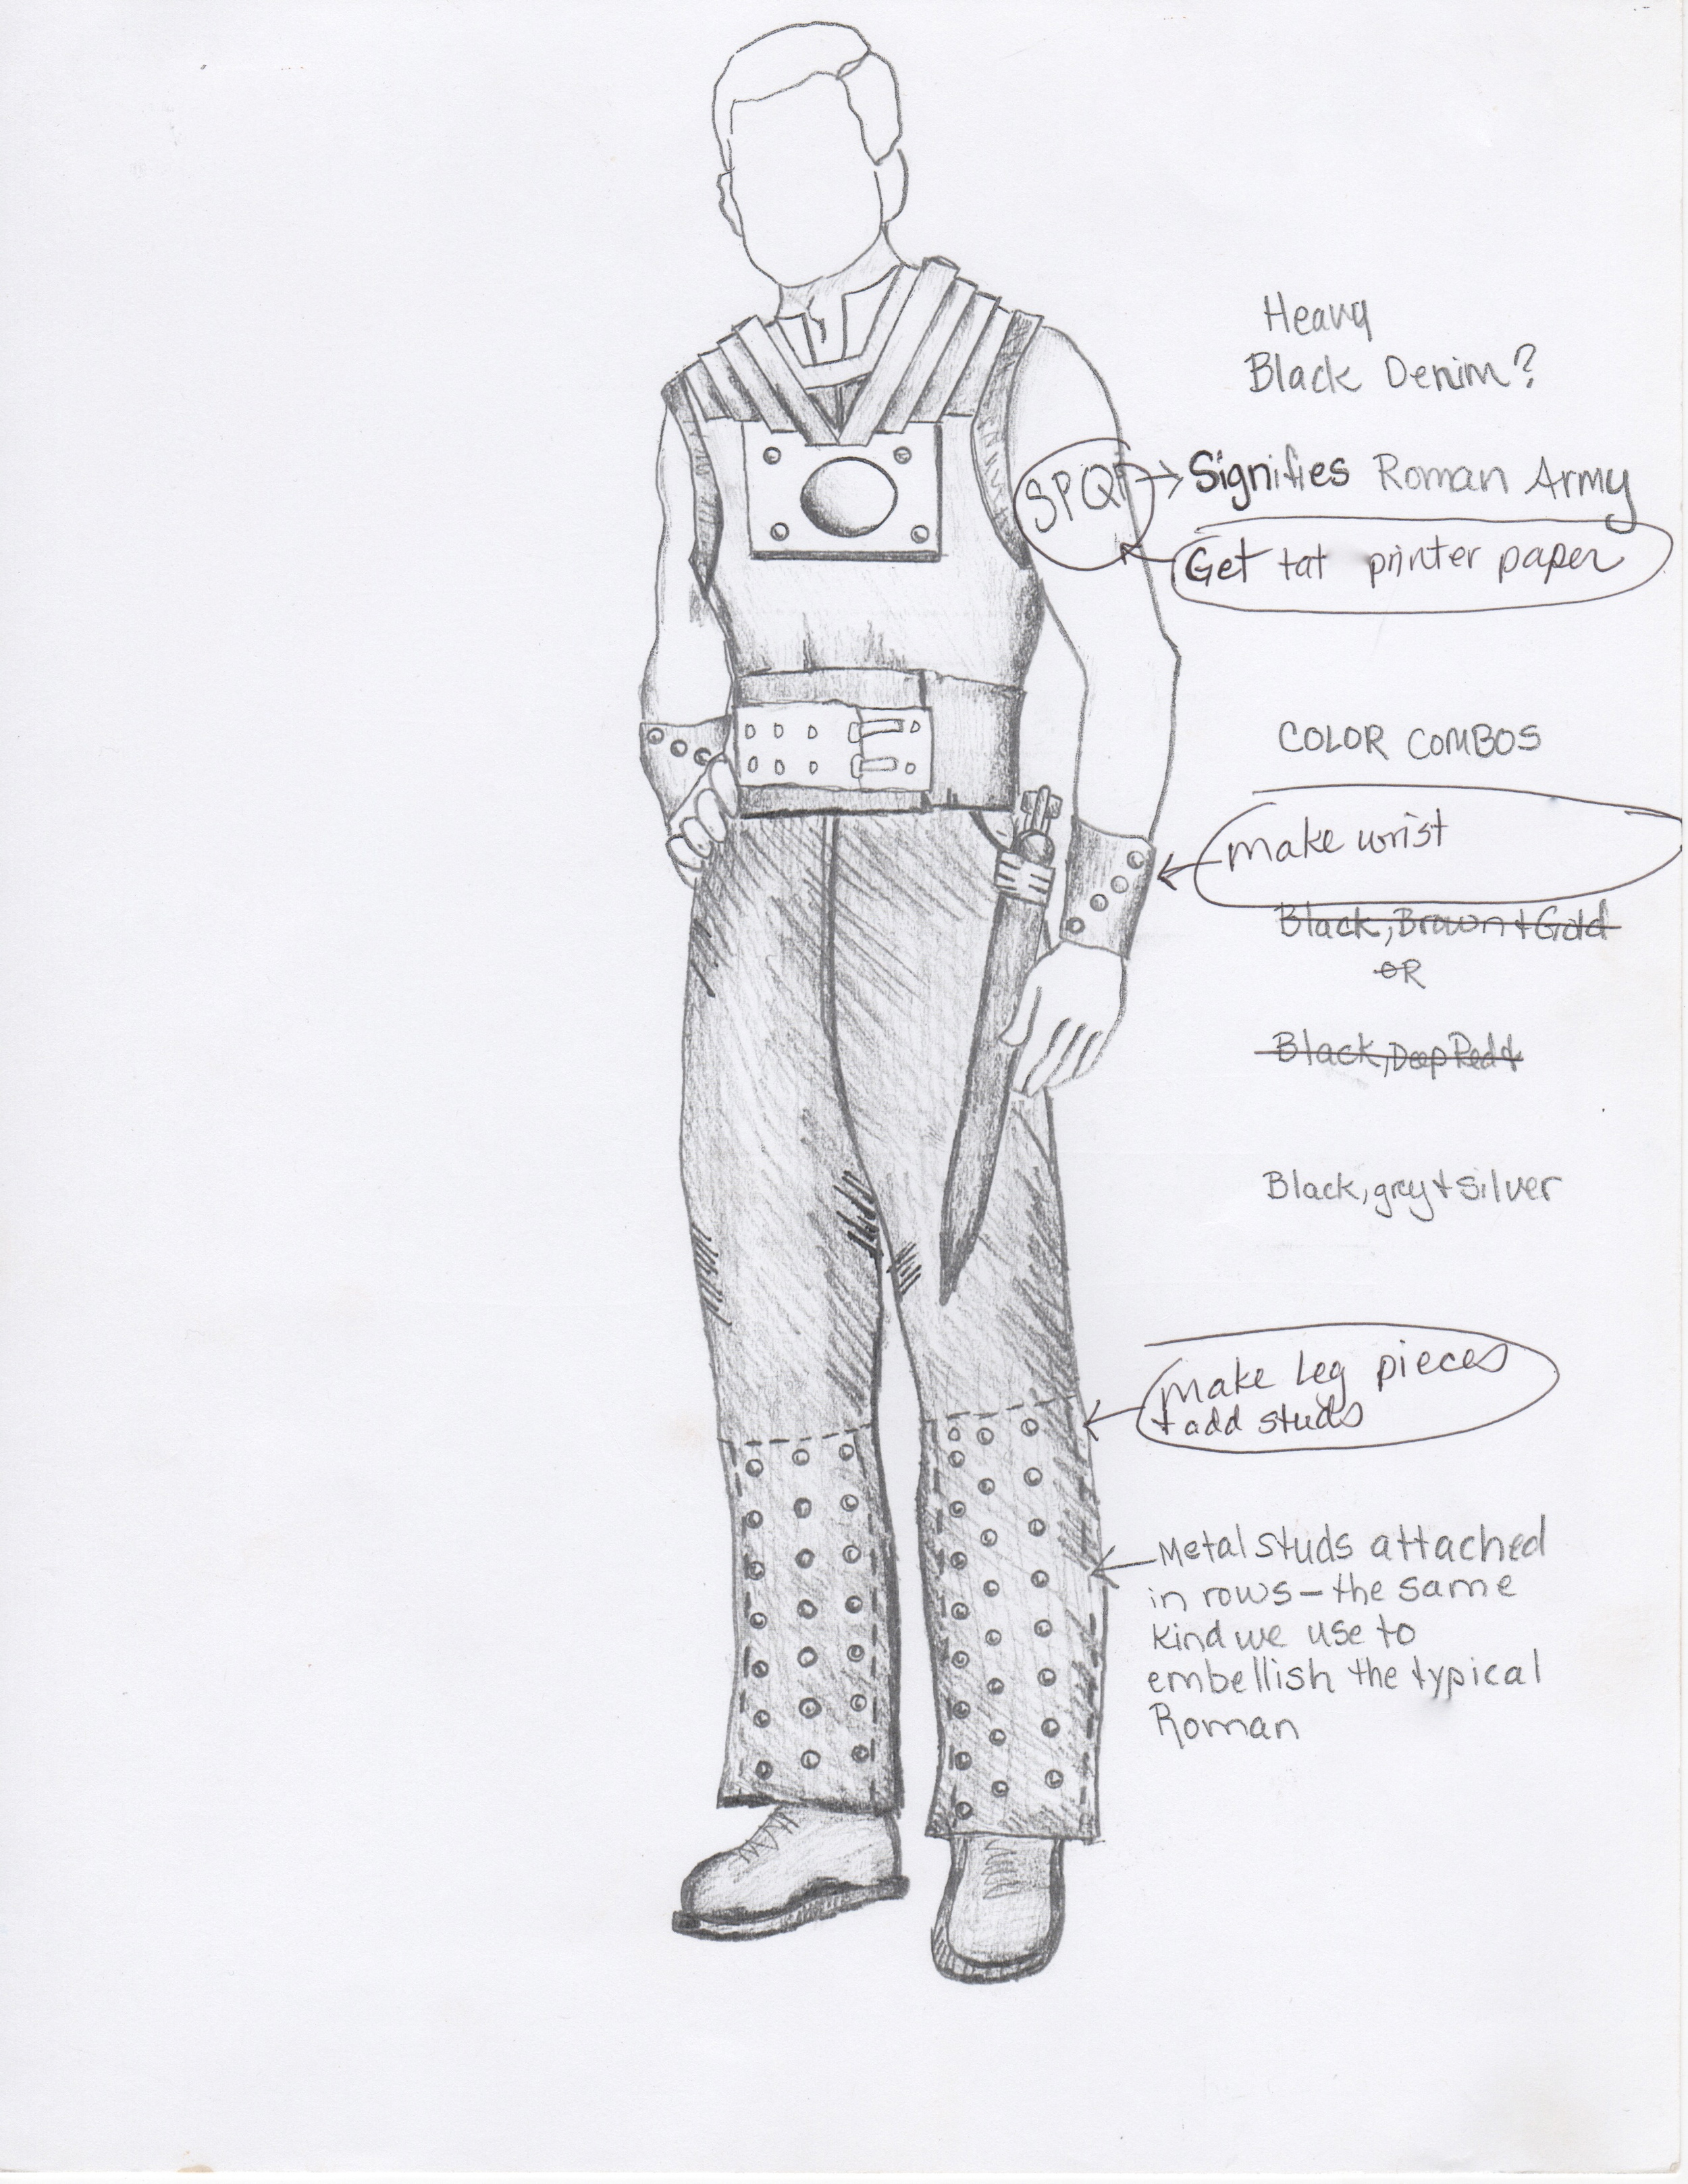 Heavy
Black Denim?
SPQR → Signifies Roman Army
Get tat printer paper
COLOR COMBOS
make wrist
Black, Brown + Gold
OR
Black, Deep Red +
Black, grey + silver
make Leg pieces
+ add studs
Metal studs attached
in rows – the same
kind we use to
embellish the typical
Roman